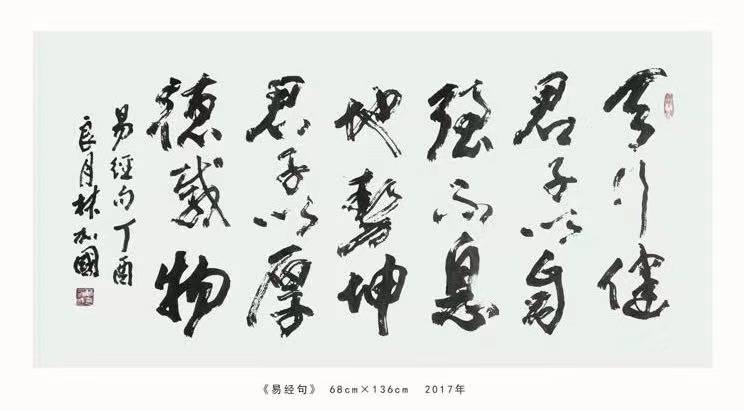 天行健
君子以自
强不息
地勢坤
君子以厚
德載物
易經句丁酉
良月林加國
《易经句》 68cm×136cm 2017年